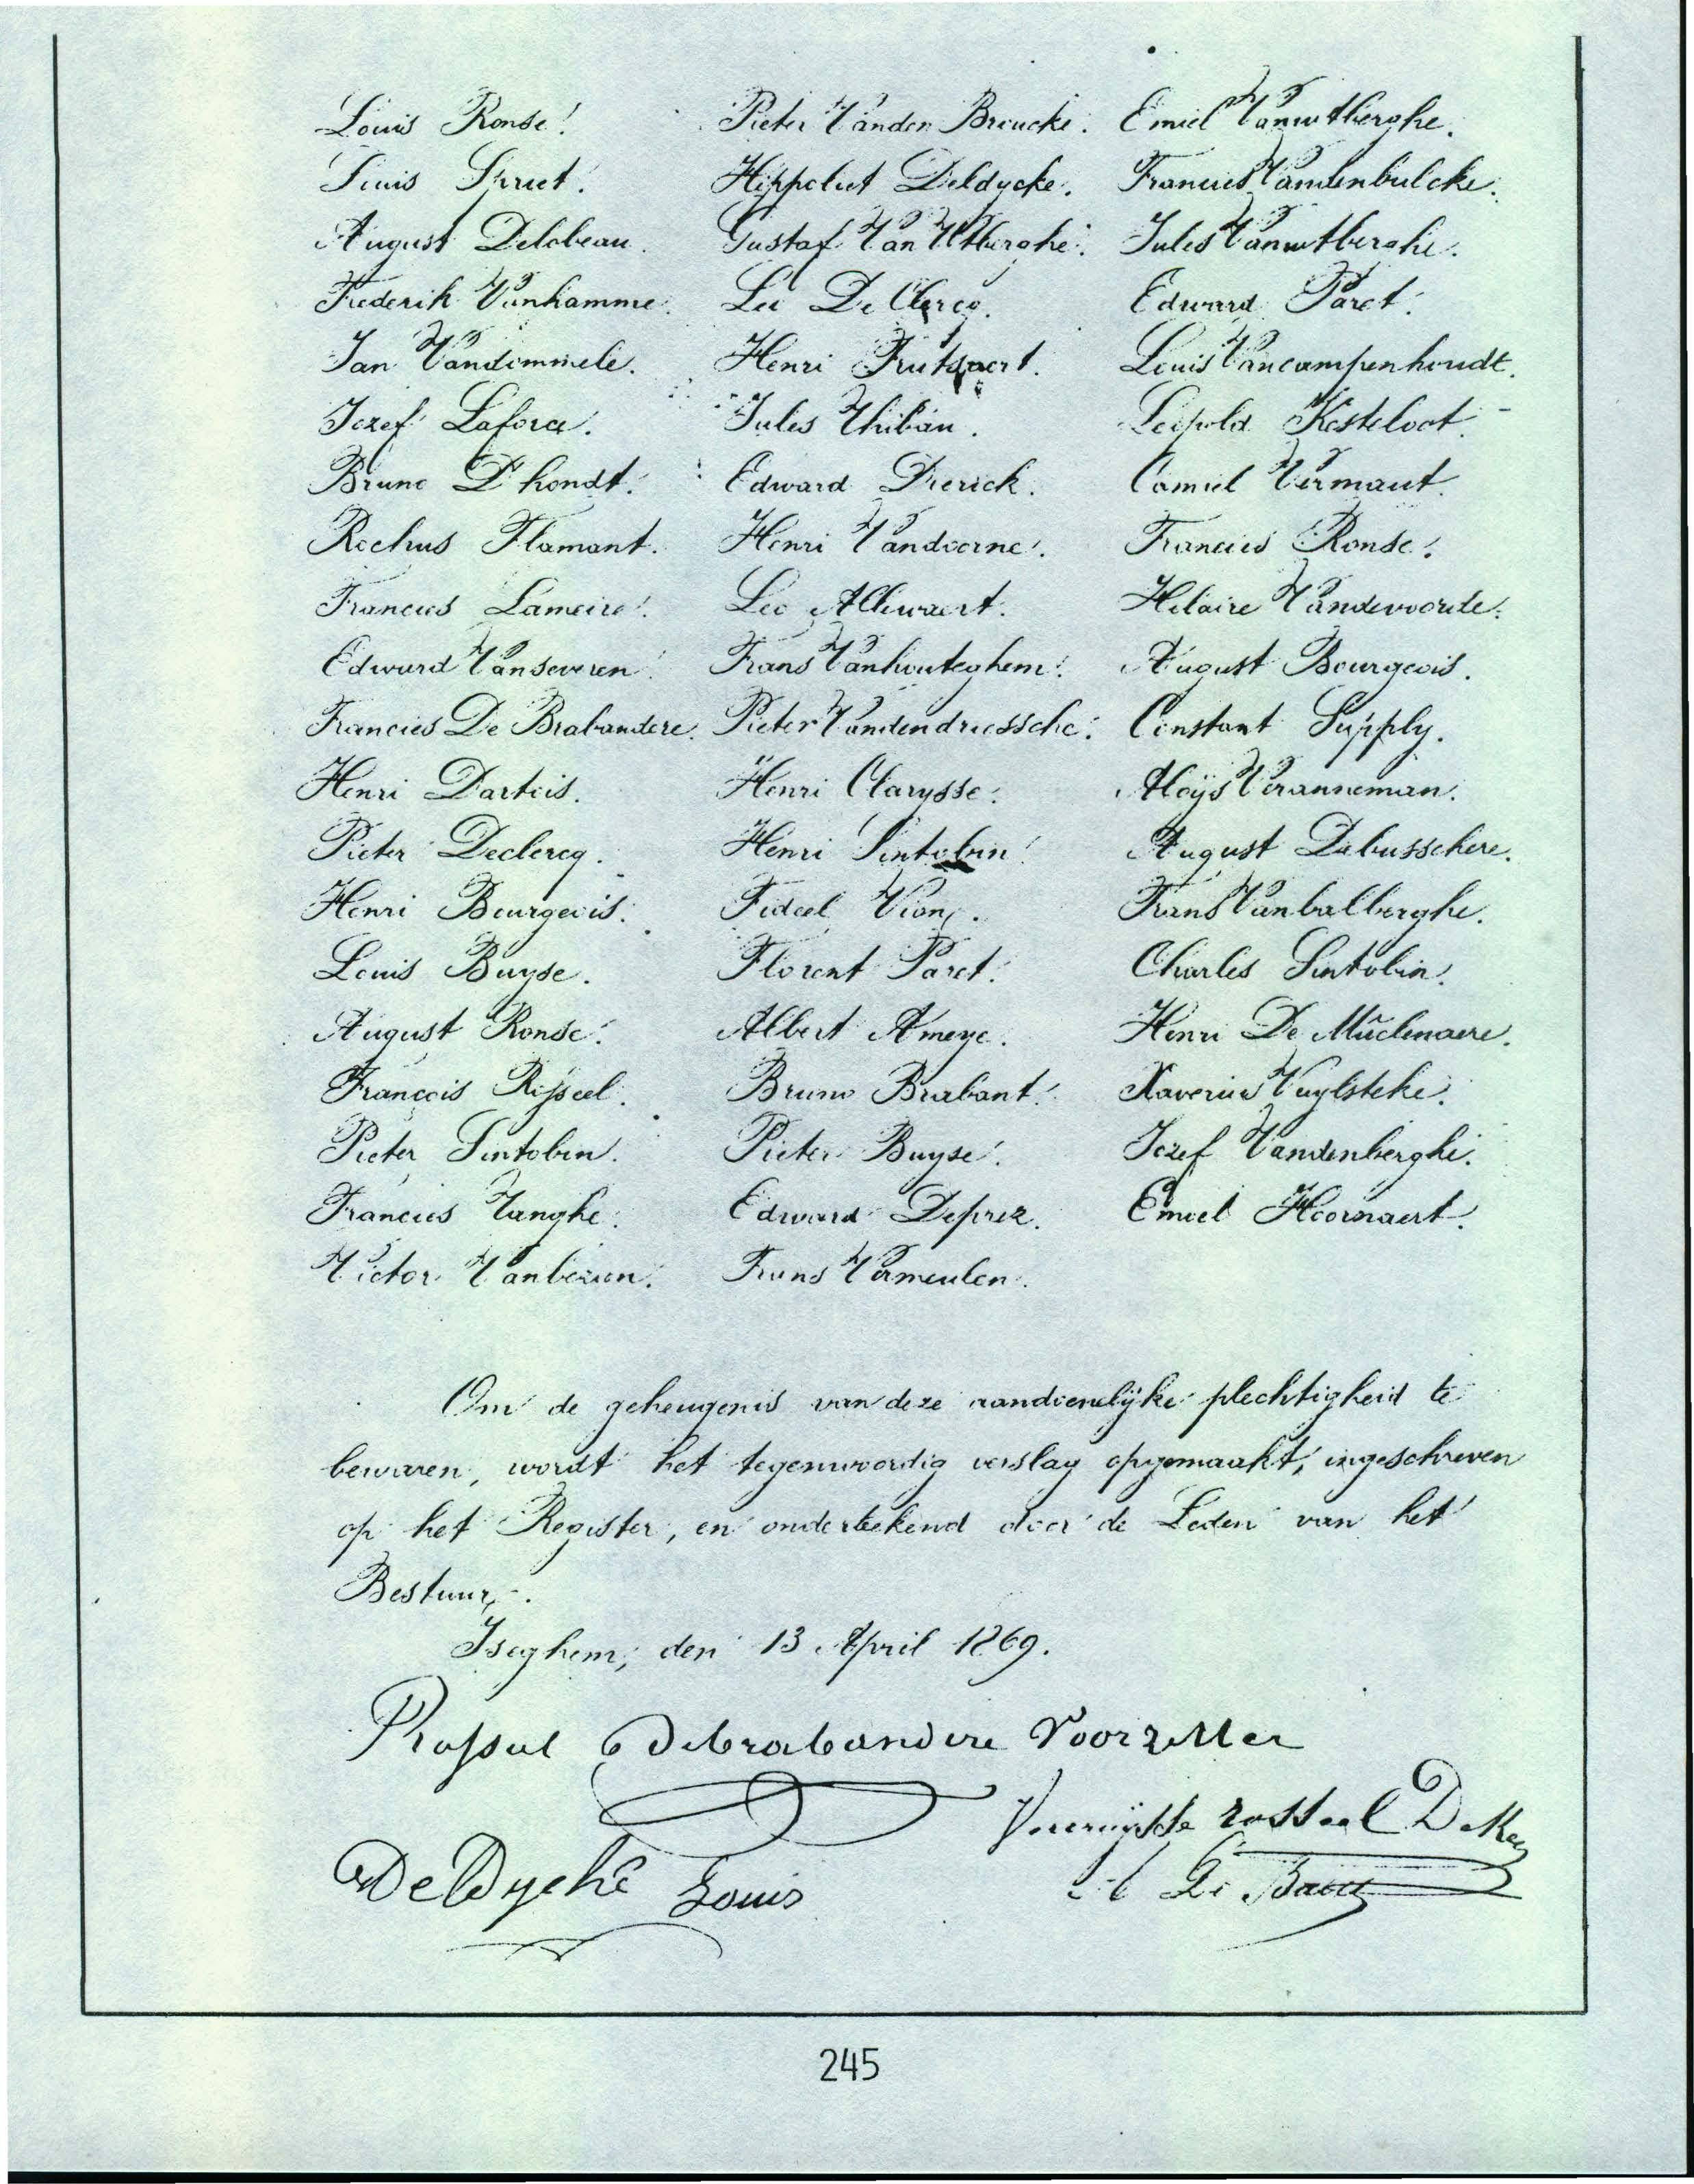 Louis Ronse. Pieter Vanden Broucke. Emiel Vanwtberghe.
Louis Spriet. Hippoliet Deldycke. Francies Vandenbulcke.
August Delobeau. Gustaf Van Wtberghe. Jules Vanwtberghe.
Frederik Vanhamme. Leo De Clercq. Edward Paret.
Jan Vandommele. Henri Frutsaert. Louis Vancampenhoudt.
Jozef Laforce. Jules Thibau. Leopold Kesteloot.
Bruno D'hondt. Edward Dierick. Camiel Vermaut.
Rochus Flamant. Henri Vandoorne. Francies Ronse.
Francies Lameire. Leo Allewaert. Hilaire Vandevoorde.
Edward Vanseveren. Frans Vanhouteghem. August Bourgeois.
Francies De Brabandere. Pieter Vandendriessche. Constant Supply.
Henri Dartois. Henri Clarysse. Aloÿs Veranneman.
Pieter Declercq. Henri Sintobin. August Debusschere.
Henri Bourgeois. Fideel Frans Vanbalberghe.
Louis Buyse. Florent Paret. Charles Sintobin.
August Ronse. Albert Ameye. Henri De Mûelenaere.
François Rosseel. Bruno Brabant. Xaverius Vuylsteke.
Pieter Sintobin. Pieter Buyse. Jozef Vandenberghe.
Francies Tanghe. Edward Deprez. Emiel Hoornaert.
Victor Frans Vermeulen.
Om de geheugenis van deze aandoenelijke plechtigheid te
bewaren, wordt het tegenwoordig verslag opgemaakt, ingeschreven
op het Register, en onderteekend door de Leden van het
Bestuur.
Iseghem, den 13 April 1869.
Debrabandere Voorzitter
rosseel
DeDycke Louis De
245